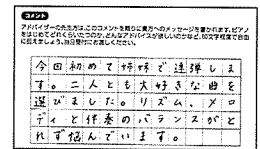 コメント
アドバイザーの先生方は、このコメントを頼りに貴方へのメッセージを書かれます。ピアノ
をはじめてどれくらいたつのか、どんなアドバイスが欲しいのかなど、80文字程度で自由
に伝えましょう。当日受付にお渡しください。
今回初めて姉妹で連弾しま
す。二人とも大好きな曲を
選びました。リズム、メロ
ディと伴奏のバランスがと
れず悩んでいます。